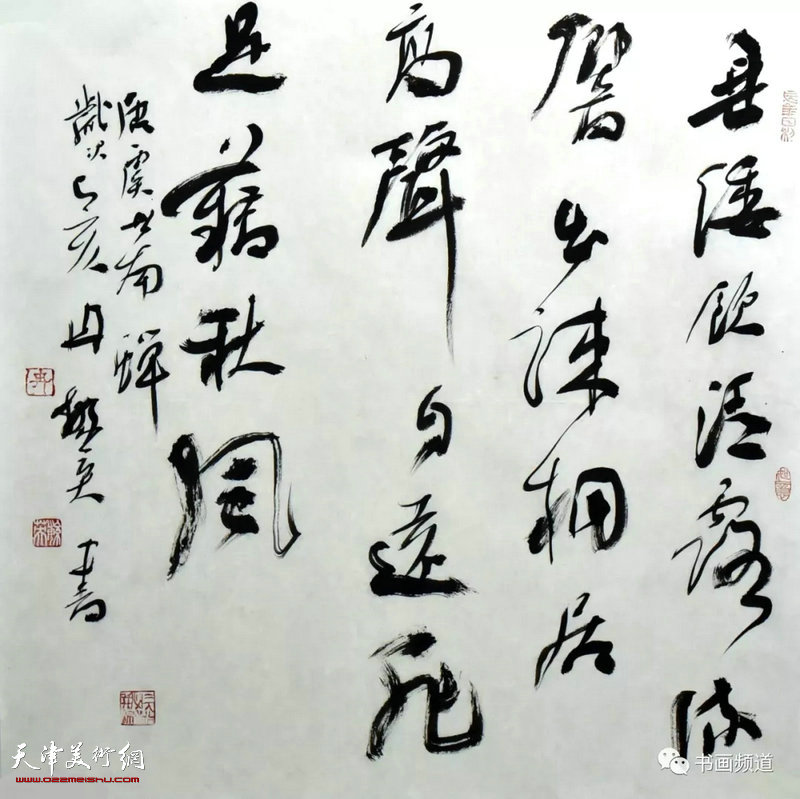 垂緌飲清露流
響出疎桐居
高聲自遠非
是藉秋風
唐虞世南蟬
歲次己亥冉繁英書
天津美術網
www.022meishu.com
书画频道